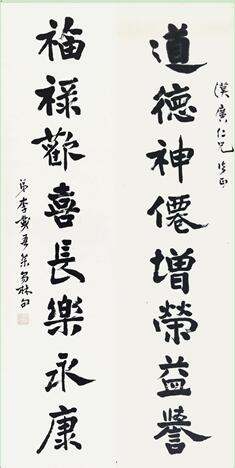 漢廣仁兄法正
道德神僊增榮益譽
福祿歡喜長樂永康
弟李戴吾集易林句